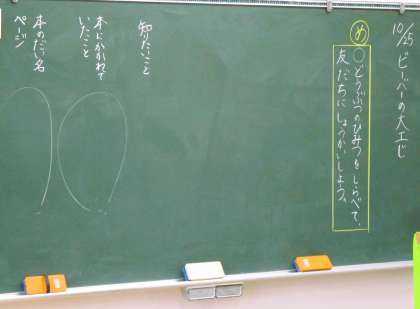 10/25 ビーバーの大工じ
め
○どうぶつのひみつをしらべて、
友だちにしょうかいしよう。
知りたいこと
本にかかれて
いたこと
本のだい名
ページ